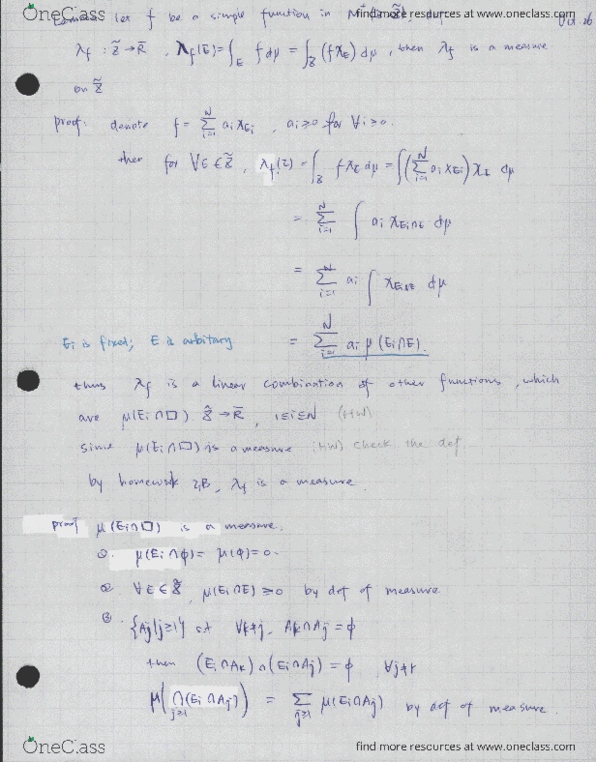 OneClass find more resources at www.oneclass.com
let f be a simple function in
λf : X̃→R̄ , λf(E)=∫_E f dμ = ∫_X (fχ_E) dμ , then λf is a measure
on X̃
proof: denote f= Σ_{i=1}^N ai χEi , ai≥0 for ∀i≥0.
then for ∀E∈X̃, λf(E)=∫_X fχE dμ = ∫(Σ_{i=1}^N ai χEi) χE dμ
= Σ_{i=1}^N ∫ ai χEi∩E dμ
= Σ_{i=1}^N ai ∫ χEi∩E dμ
Ei is fixed; E is arbitrary = Σ_{i=1}^N ai μ(Ei∩E).
thus λf is a linear combination of other functions, which
are μ(Ei∩□) X̃→R̄, 1≤i≤N (HW)
sinse μ(Ei∩□) is a measure (HW) check the def
by homework 2,B, λf is a measure.
proof μ(Ei∩□) is a measure.
①. μ(Ei∩ϕ)= μ(ϕ)=0.
② ∀E∈X̃, μ(Ei∩E)≥0 by def of measure
③ {Aj|j≥1} st ∀k≠j, Ak∩Aj=ϕ
then (Ei∩Ak)∩(Ei∩Aj)=ϕ ∀j≠k
μ(∩_{j≥1}(Ei∩Aj)) = Σ_{j≥1} μ(Ei∩Aj) by def of measure.
OneClass find more resources at www.oneclass.com